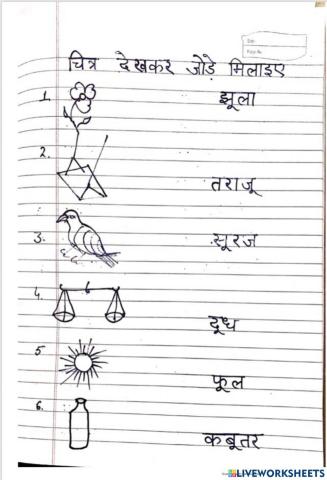 चित्र देखकर जोड़े मिलाइए
1. झूला
2.
तराजू
3. सूरज
4.
दूध
5.
फूल
6.
कबूतर
LIVEWORKSHEETS